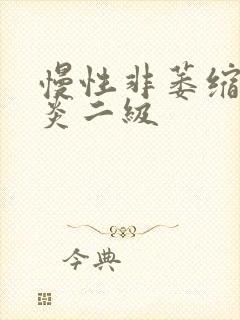 慢性非萎缩
炎二级
今典